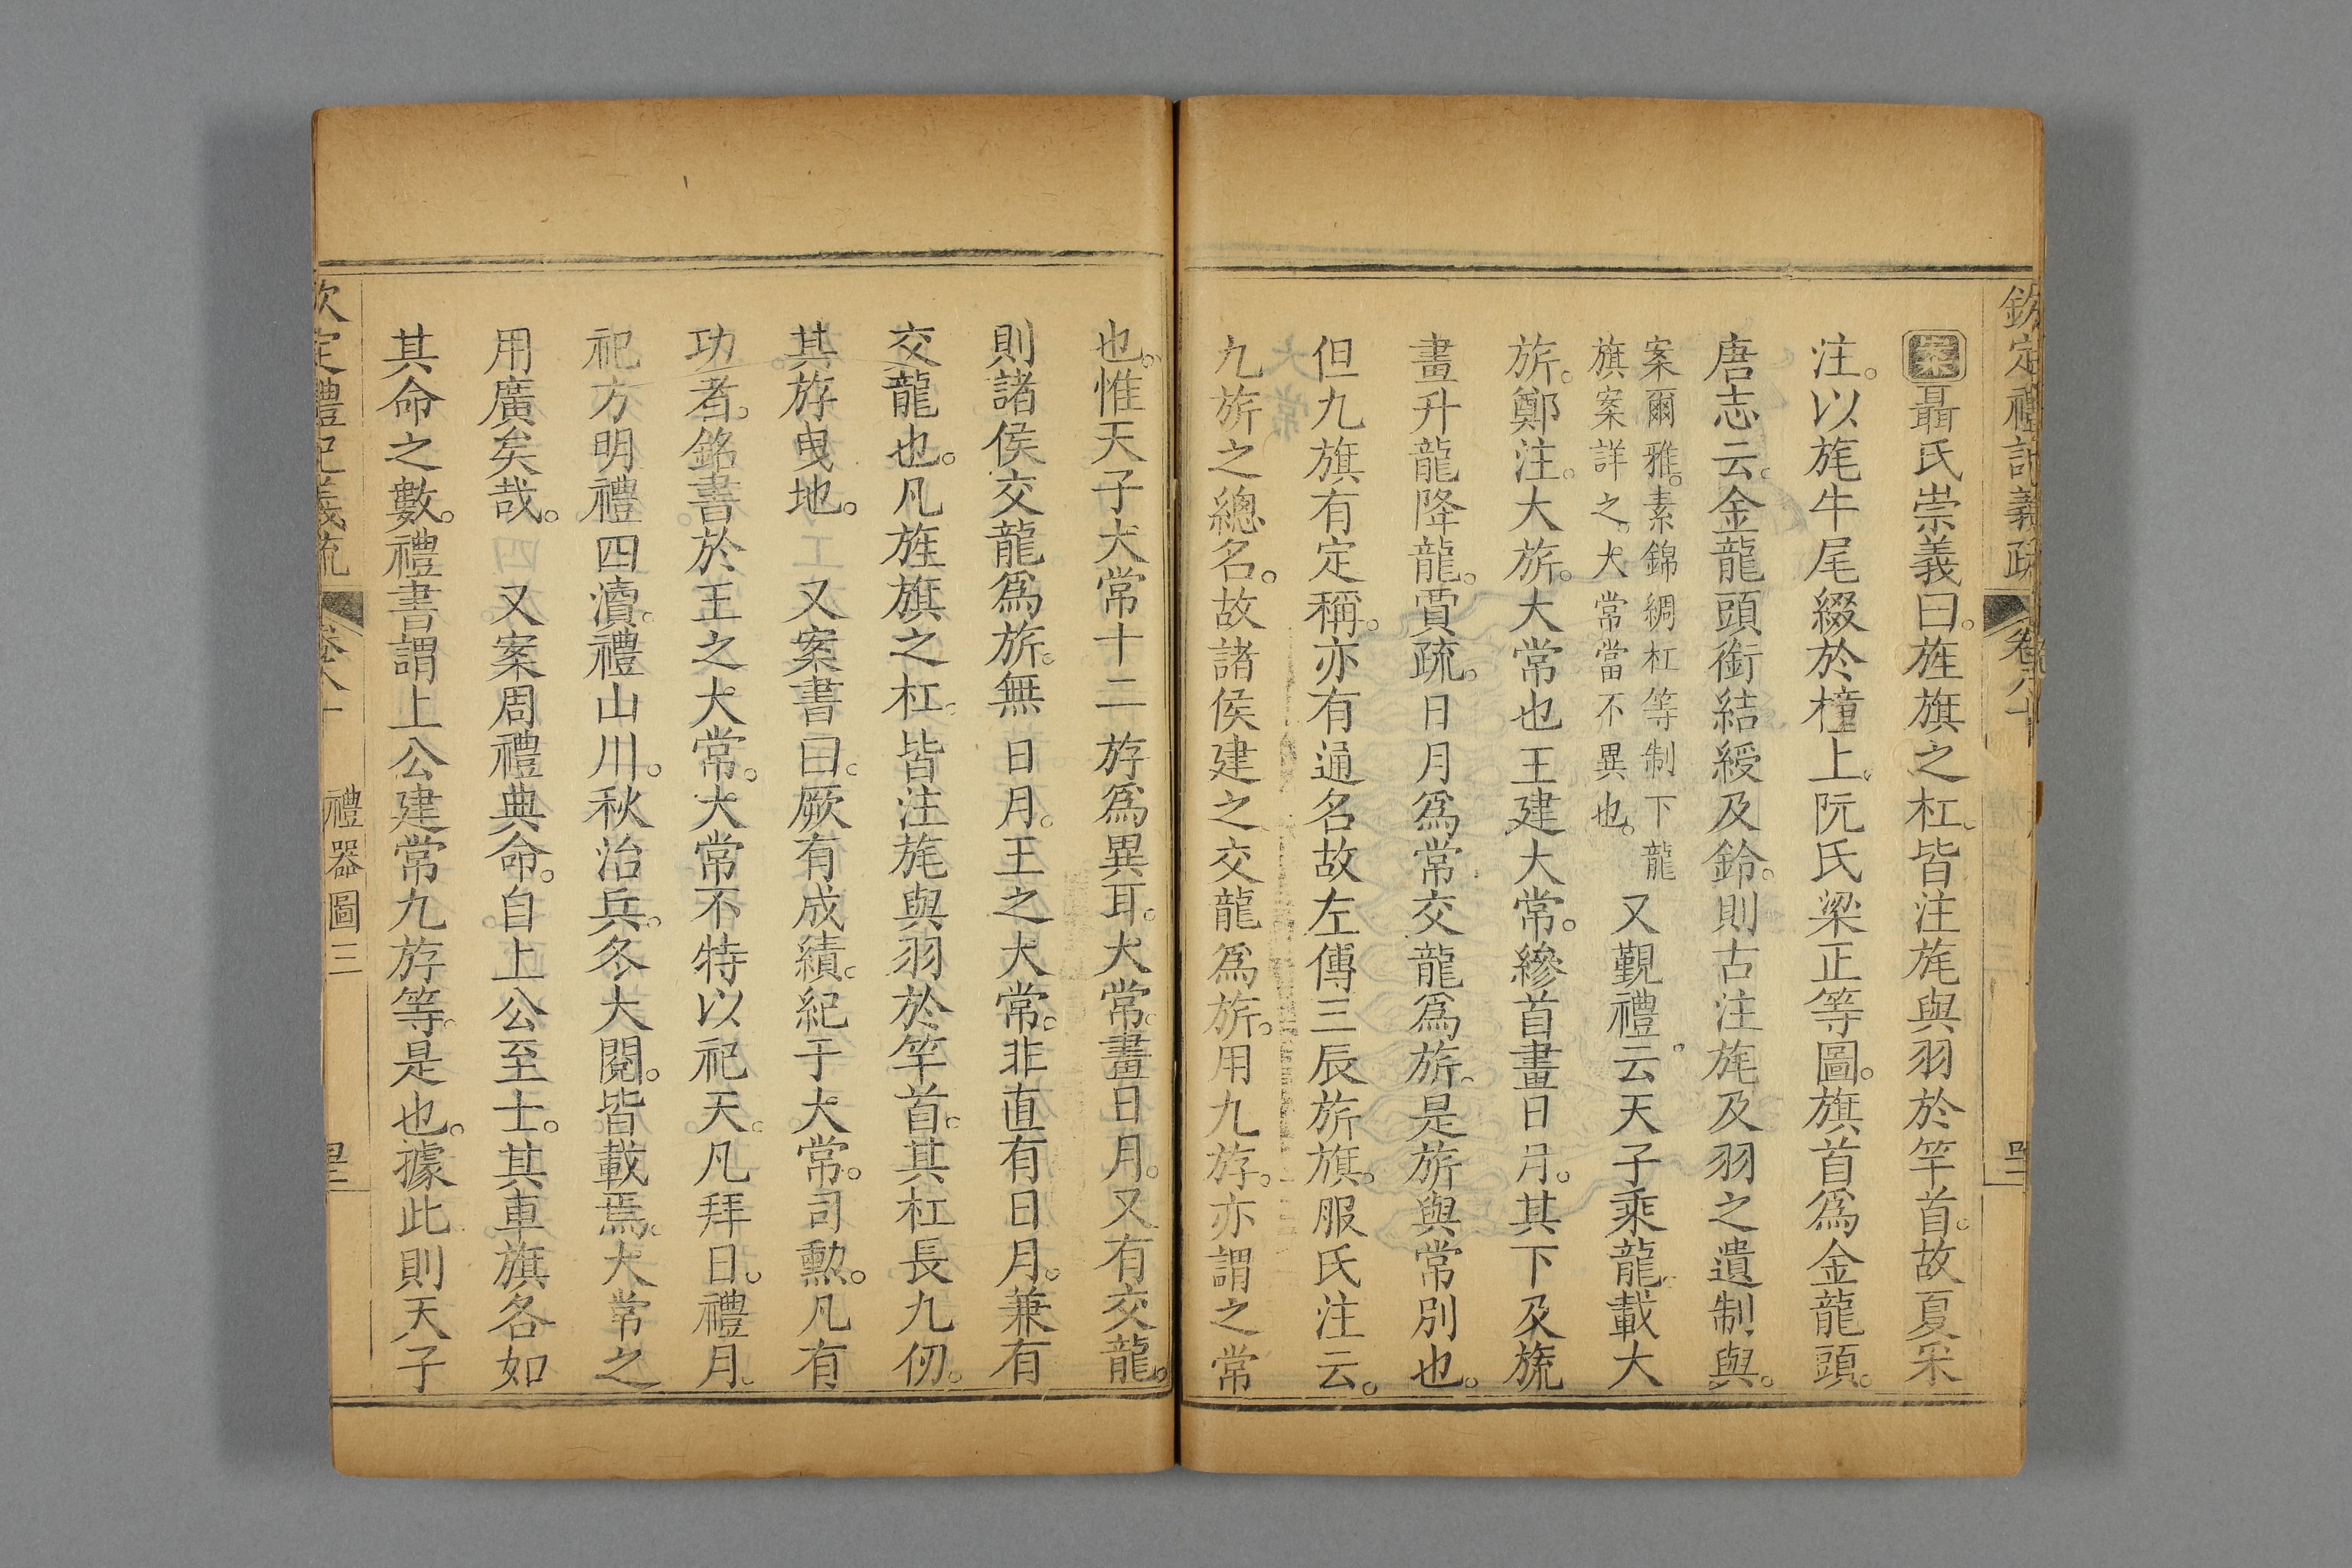 欽定禮記義疏
卷八十
案聶氏崇義曰。旌旗之杠。皆注旄與羽於竿首。故夏采
注。以旄牛尾綴於橦上。阮氏梁正等圖。旗首爲金龍頭。
唐志云。金龍頭銜結綬及鈴。則古注旄及羽之遺制與。
案爾雅。素錦綢杠等制下龍
旗案詳之。大常當不異也。
又覲禮云。天子乘龍。載大
旂。鄭注。大旂。大常也王建大常。縿首畫日月。其下及旒
畫升龍降龍。賈疏。日月爲常交龍爲旂。是旂與常別也。
但九旗有定稱。亦有通名故左傳三辰旂旗。服氏注云。
九旂之總名。故諸侯建之交龍爲旂。用九斿。亦謂之常
也。惟天子大常十二斿爲異耳。大常。畫日月。又有交龍。
則諸侯交龍爲旂。無日月。王之大常。非直有日月。兼有
交龍也。凡旌旗之杠。皆注旄與羽於竿首。其杠長九仞。
其斿曳地。又案書曰。厥有成績。紀于大常。司勲。凡有
功者。銘書於王之大常。大常不特以祀天。凡拜日。禮月。
祀方明禮四瀆。禮山川。秋治兵。冬大閱。皆載焉。大常之
用廣矣哉。又案周禮典命。自上公至士。其車旗各如
其命之數。禮書謂上公建常九斿等。是也。據此則天子
欽定禮記義疏
卷八十
禮器圖三